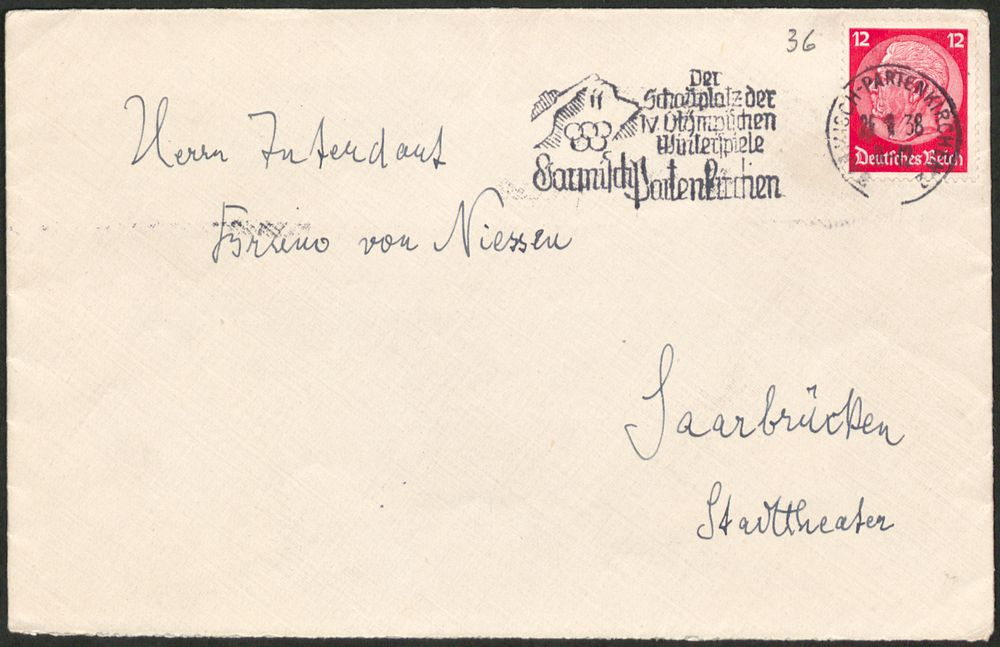 36
12 12
Deutsches Reich
Der
Schauplatz der
IV. Olympischen
Winterspiele
Garmisch Partenkirchen
MISCH-PARTENKIRCHEN
38
Herrn Intendant
Bruno von Niessen
Saarbrücken
Stadttheater